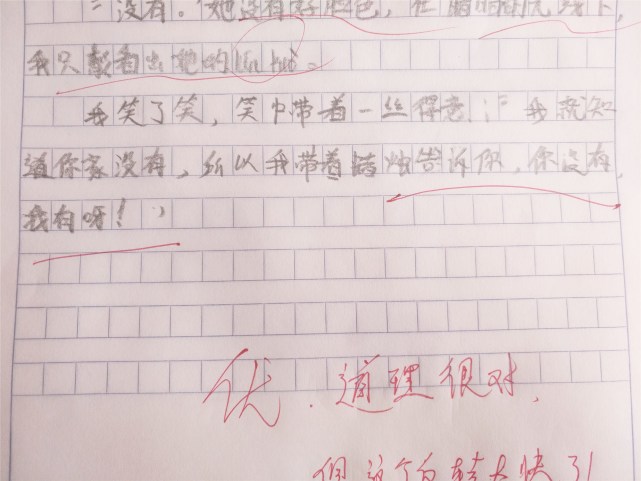 没有。"她没有好脸色,在暗暗的光线下,
我只能看出她的lún kuò。
我笑了笑,笑中带着一丝得意:"我就知
道你家没有,所以我带着蜡烛告诉你,你没有,
我有呀!"
优.道理很对,
但这个白转太快了!